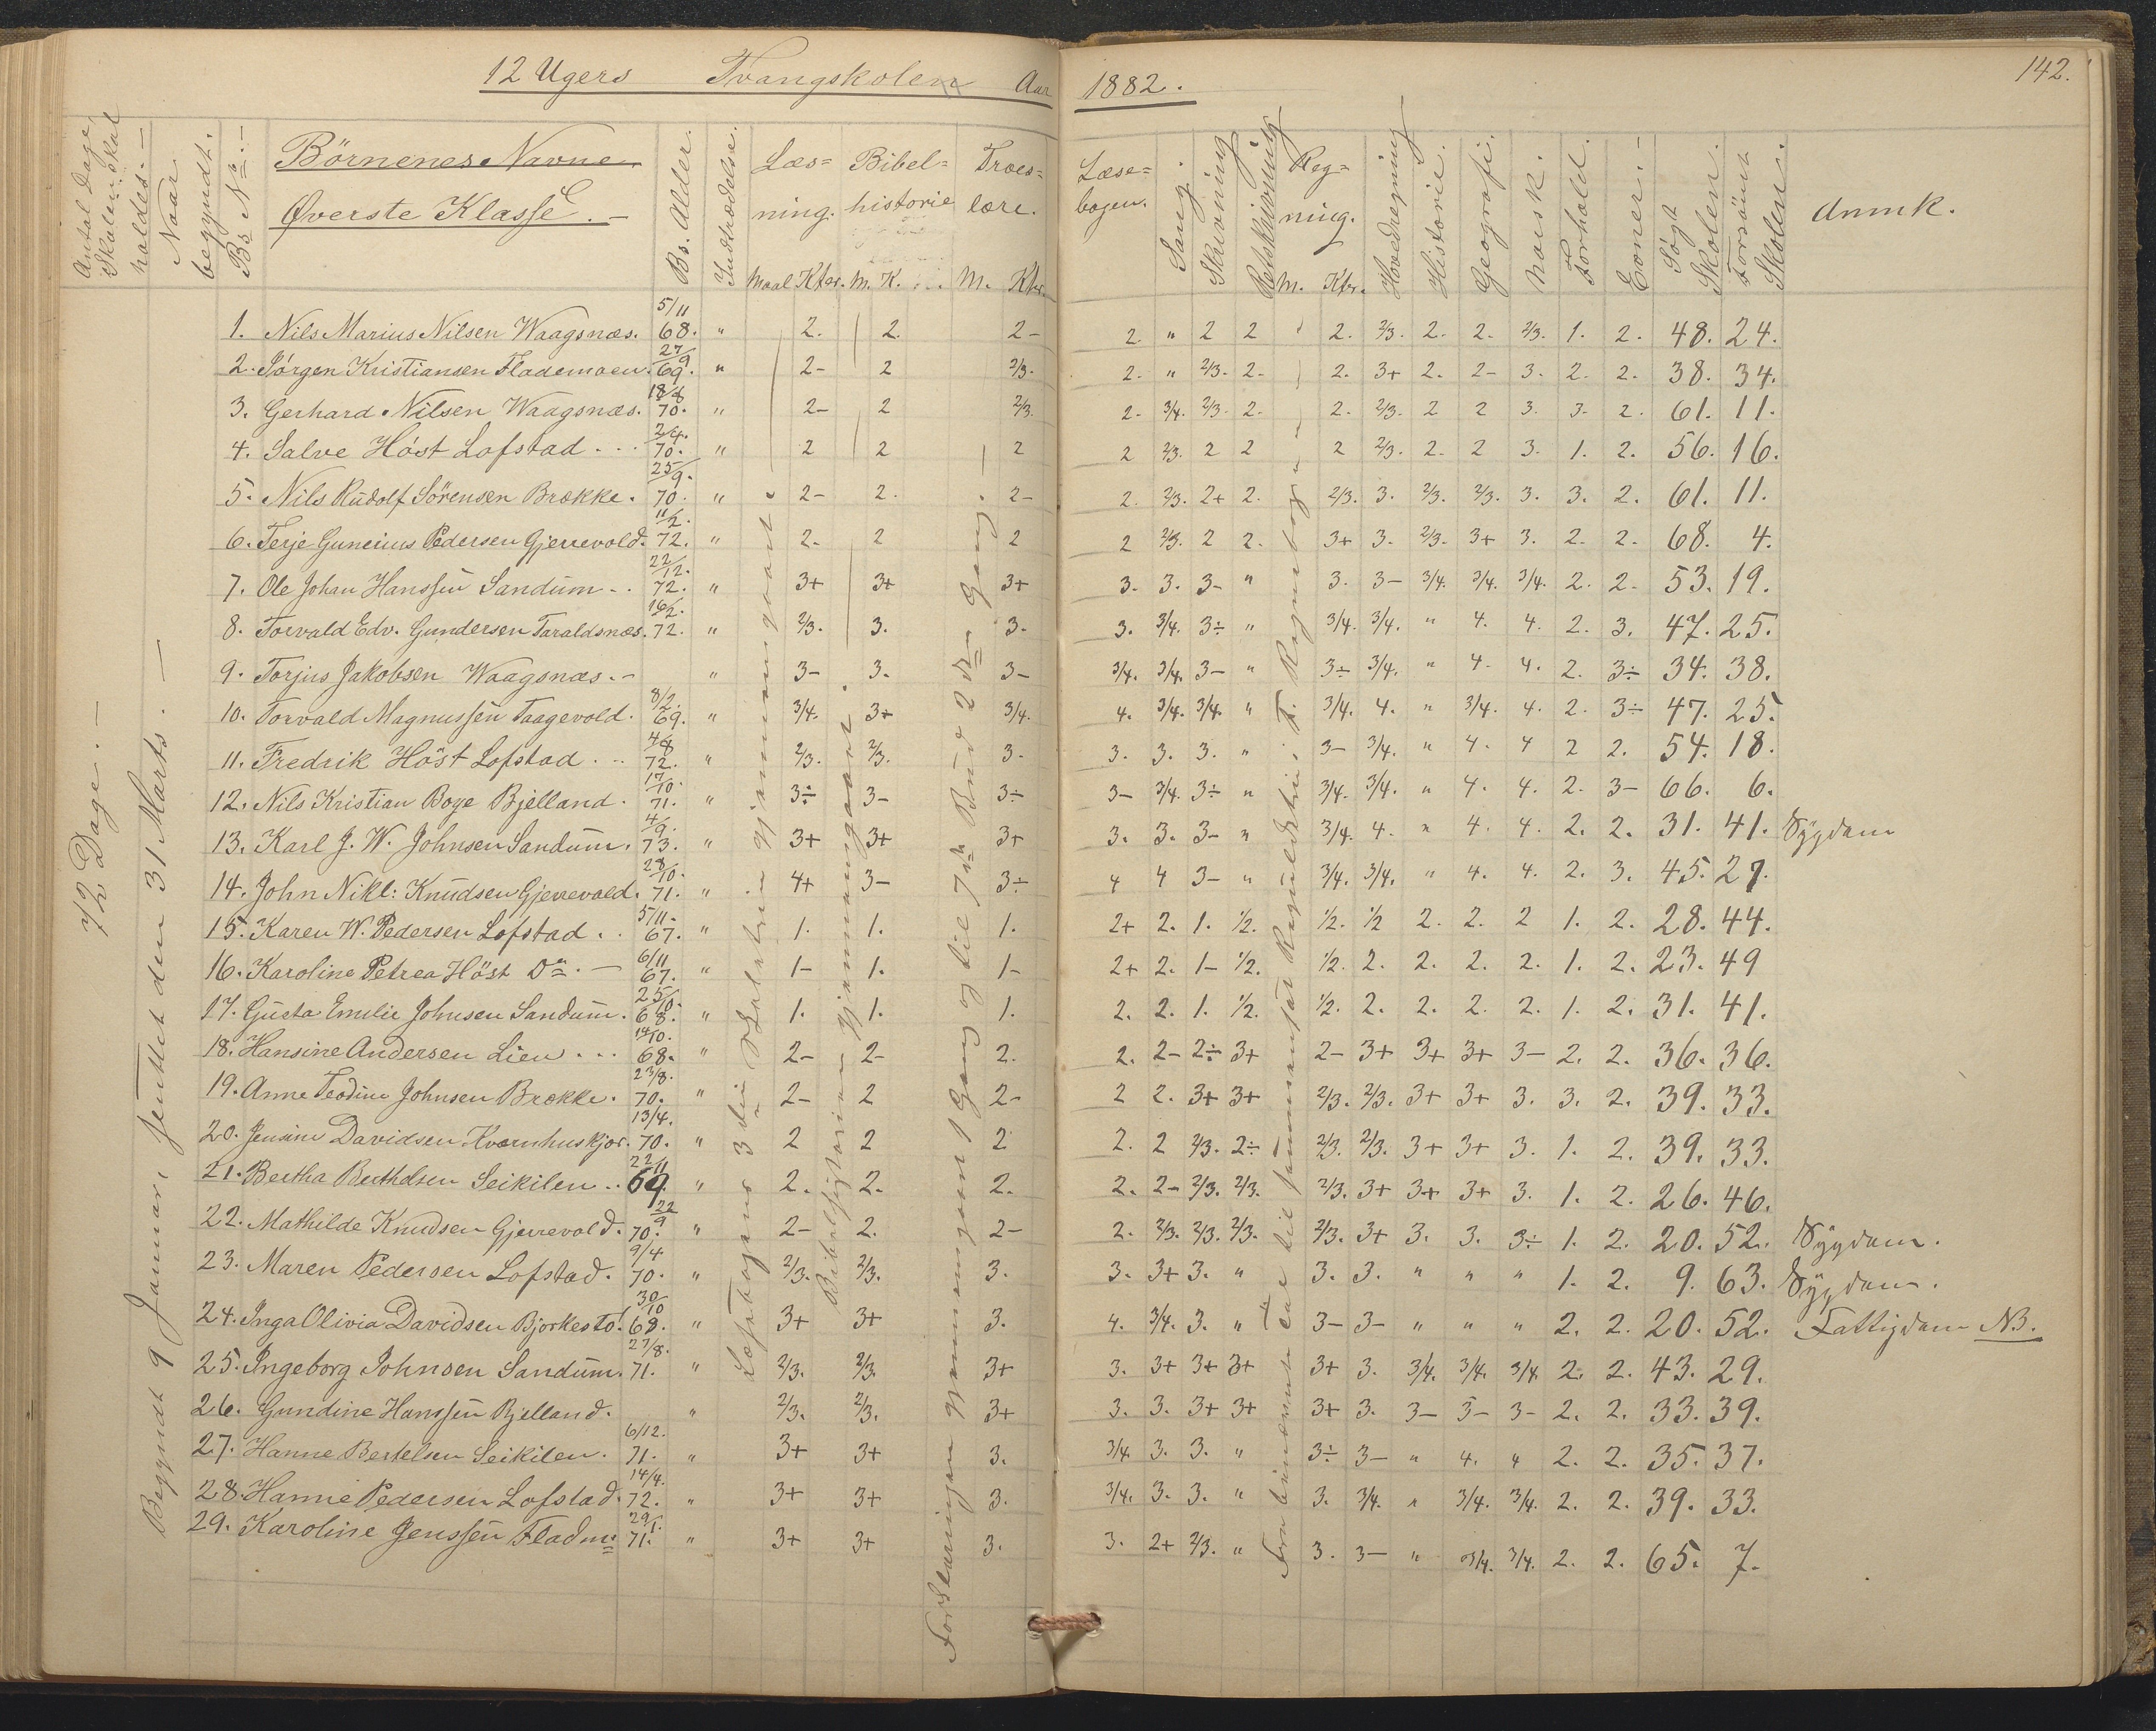 12 Ugers Tvangskolen Aar 1882. 142.
Antal Dage, Skolen skal holdes. —
Naar begyndt.
Bs No. —
Børnenes Navne
Øverste Klasse. —
Bs. Alder.
Indtrædelse.
Læsning. Maal Kter.
Bibelhistorie M. K.
Troeslære. M. Kter.
Læsebogen.
Sang.
Skrivning
Retskrivning
Regning. M. Kter.
Hovedregning
Historie.
Geografi.
Norsk.
Forhold.
Evner. —
Søgt Skolen.
Forsömt Skolen.
Anmk.
72 Dage. —
Begyndt 9 Januar, sluttet den 31 Marts. —
1. Nils Marius Nilsen Waagsnæs. 5/11 68. " 2. 2. 2- 2. " 2 2 2. 2/3. 2. 2. 2/3. 1. 2. 48. 24.
2. Jörgen Kristiansen Flademoen. 27/9 69. " 2- 2 2/3. 2. " 2/3. 2- 2. 3+ 2. 2- 3. 2. 2. 38. 34.
3. Gerhard Nilsen Waagsnæs. 18/8 70. " 2- 2 2/3. 2- 3/4. 2/3. 2. 2. 2/3. 2 2 3. 3. 2. 61. 11.
4. Salve Höst Lofstad . . . 2/4. 70. " 2 2 2 2 2/3. 2 2 2 2/3. 2. 2 3. 1. 2. 56. 16.
5. Nils Rudolf Sörensen Brække. 25/9. 70. " 2- 2. 2- 2. 2/3. 2+ 2. 2/3. 3. 2/3. 2/3. 3. 3. 2. 61. 11.
6. Terje Guneius Pedersen Gjerrevold. 11/2. 72. " 2. 2 2 2 2/3. 2 2. 3+ 3. 2/3. 3+ 3. 2. 2. 68. 4.
7. Ole Johan Hanssen Sandum . . 22/12. 72. " 3+ 3+ 3+ 3. 3. 3- " 3. 3- 3/4. 3/4. 3/4. 2. 2. 53. 19.
8. Torvald Edv. Gundersen Taraldsnæs. 16/2. 72. " 2/3. 3. 3. 3. 3/4. 3÷ " 3/4. 3/4. " 4. 4. 2. 3. 47. 25.
9. Torjus Jakobsen Waagsnæs. - " 3- 3. 3- 3/4. 3/4. 3- " 3÷ 3/4. " 4. 4. 2. 3÷ 34. 38.
10. Torvald Magnussen Taagevold. 8/2. 69. " 3/4. 3+ 3/4. 4. 3/4. 3/4. " 3/4. 4. " 3/4. 4. 2. 3÷ 47. 25.
11. Fredrik Höst Lofstad . . . 4/8 72. " 2/3. 2/3. 3. 3. 3. 3. " 3- 3/4. " 4. 4 2 2. 54. 18.
12. Nils Kristian Boye Bjelland. 17/10. 71. " 3÷ 3- 3÷ 3- 3/4. 3÷ " 3/4. 3/4. " 4. 4. 2. 3- 66. 6.
13. Karl J. W. Johnsen Sandum. 4/9. 73. " 3+ 3+ 3+ 3. 3. 3- " 3/4. 4. " 4. 4. 2. 2. 31. 41. Sygdom
14. John Nikl: Knudsen Gjerrevold. 28/10. 71. " 4+ 3- 3÷ 4 4 3- " 3/4. 3/4. " 4. 4. 2. 3. 45. 27.
15. Karen W. Pedersen Lofstad . . 5/11. 67. " 1. 1. 1. 2+ 2. 1. 1/2. 1/2. 1/2 2. 2. 2 1. 2. 28. 44.
16. Karoline Petrea Höst Do. — 6/11 67. " 1- 1. 1- 2+ 2. 1- 1/2. 1/2. 2. 2. 2. 2. 1. 2. 23. 49
17. Gusta Emilie Johnsen Sandum. 25/10. 68. " 1. 1. 1. 2. 2. 1. 1/2. 1/2. 2. 2. 2. 2. 1. 2. 31. 41.
18. Hansine Andersen Lien . . . 14/10. 68. " 2- 2- 2. 2. 2- 2÷ 3+ 2- 3+ 3+ 3+ 3- 2. 2. 36. 36.
19. Anne Teodine Johnsen Brække. 23/8. 70. " 2- 2 2- 2 2. 3+ 3+ 2/3. 2/3. 3+ 3+ 3. 3. 2. 39. 33.
20. Jensine Davidsen Kvarnhuskjær. 13/4. 70. " 2 2 2 2. 2 2/3. 2÷ 2/3. 2/3. 3+ 3+ 3. 1. 2. 39. 33.
21. Bertha Berthelsen Seikilen . . 22/11 69. " 2. 2. 2. 2. 2- 2/3. 2/3. 2/3. 3+ 3+ 3+ 3. 1. 2. 26. 46.
22. Mathilde Knudsen Gjerrevold. 22/9 70. " 2- 2. 2- 2. 2/3. 2/3. 2/3. 2/3. 3+ 3. 3. 3÷ 1. 2. 20. 52. Sygdom.
23. Maren Pedersen Lofstad. 9/4 70. " 2/3. 2/3. 3. 3. 3+ 3. " 3. 3. " " " 1. 2. 9. 63. Sygdom.
24. Inga Olivia Davidsen Bjorkesto! 30/10 68. " 3+ 3+ 3. 4. 3/4. 3. " 3- 3- " " " 2. 2. 20. 52. Fattigdom NB.
25. Ingeborg Johnsen Sandum. 27/8. 71. " 2/3. 2/3. 3+ 3. 3+ 3+ 3+ 3+ 3. 3/4. 3/4. 3/4 2. 2. 43. 29.
26. Gundine Hanssen Bjelland. " 2/3. 2/3. 3+ 3. 3. 3+ 3+ 3+ 3. 3- 3- 3- 2. 2. 33. 39.
27. Hanne Bertelsen Seikilen. 6/12. 71. " 3+ 3+ 3. 3/4. 3. 3. " 3÷ 3- " 4. " 2. 2. 35. 37.
28. Hanne Pedersen Lofstad. 14/4. 72. " 3+ 3+ 3. 3/4. 3. 3. " 3. 3/4. " 3/4. 3/4. 2. 2. 39. 33.
29. Karoline Jenssen Fladm: 29/1. 71. " 3+ 3+ 3. 3. 2+ 2/3. " 3. 3- " 3/4. 3/4. 2. 2. 65. 7.
Læsebogens 3die gjennemgaaet.
Bibelhistorien gjennemgaaet.
Forklaringen gjennemgaaet 1 Gang og til 7de Bud 2den Gang.